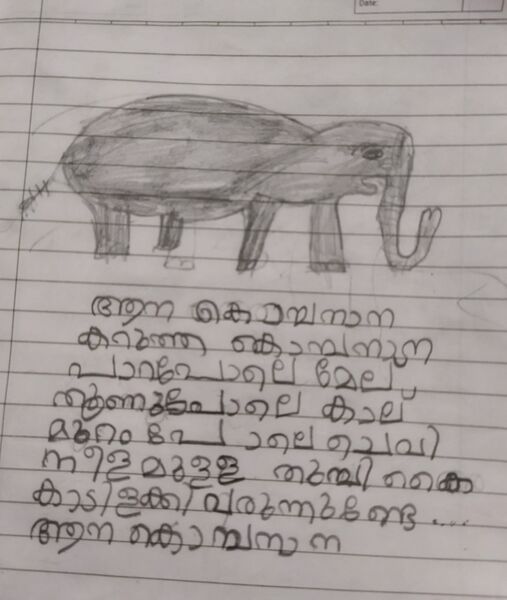 Date:
ആന കൊമ്പനാന
കറുത്ത കൊമ്പനാന
പാറപോലെ മേല്
തൂണുപോലെ കാല്
മുറംപോലെ ചെവി
നീളമുള്ള തുമ്പികൈ
കാടിളക്കിവരുന്നുണ്ടേ....
ആന കൊമ്പനാന